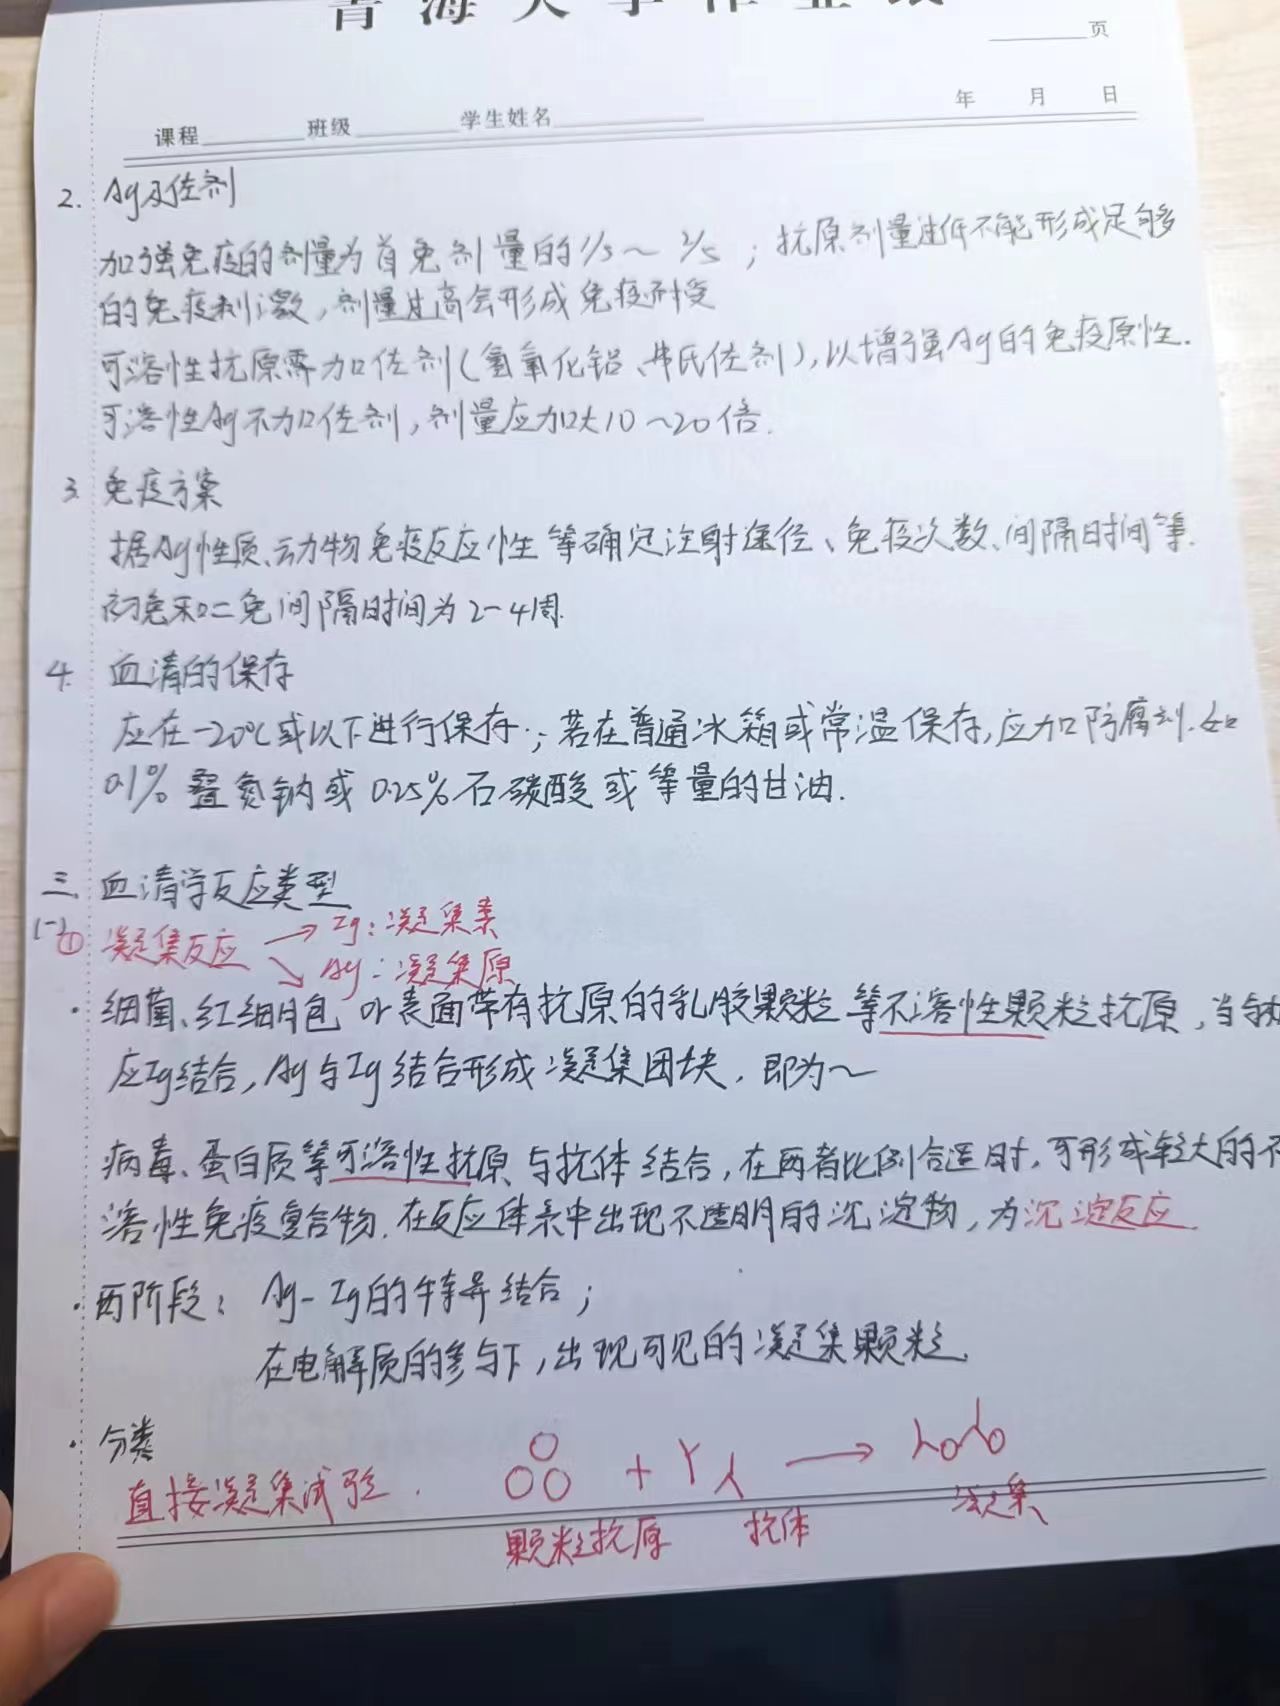 青海大学作业纸
页
年 月 日
课程 班级 学生姓名
2. Ag及佐剂
加强免疫的剂量为首免剂量的1/5～2/5；抗原剂量过低不能形成足够
的免疫刺激，剂量过高会形成免疫耐受
可溶性抗原需加佐剂(氢氧化铝、弗氏佐剂)，以增强Ag的免疫原性.
可溶性Ag不加佐剂，剂量应加大10～20倍.
3. 免疫方案
据Ag性质、动物免疫反应性等确定注射途径、免疫次数、间隔时间等.
初免和二免间隔时间为2-4周.
4. 血清的保存
应在-20℃或以下进行保存.；若在普通冰箱或常温保存，应加防腐剂.如
0.1% 叠氮钠或0.25%石碳酸或等量的甘油.
三. 血清学反应类型
(一)① 凝集反应 → Ig：凝集素
↘ Ag：凝集原
· 细菌、红细胞 or 表面带有抗原的乳胶颗粒等不溶性颗粒抗原，当
应Ig结合，Ag与Ig结合形成凝集团块，即为～
病毒、蛋白质等可溶性抗原与抗体结合，在两者比例合适时，可形成较大的不
溶性免疫复合物.在反应体系中出现不透明的沉淀物，为沉淀反应.
· 两阶段：Ag-Ig的特异结合；
在电解质的参与下，出现可见的凝集颗粒.
· 分类
直接凝集试验. + →
颗粒抗原 抗体 凝集